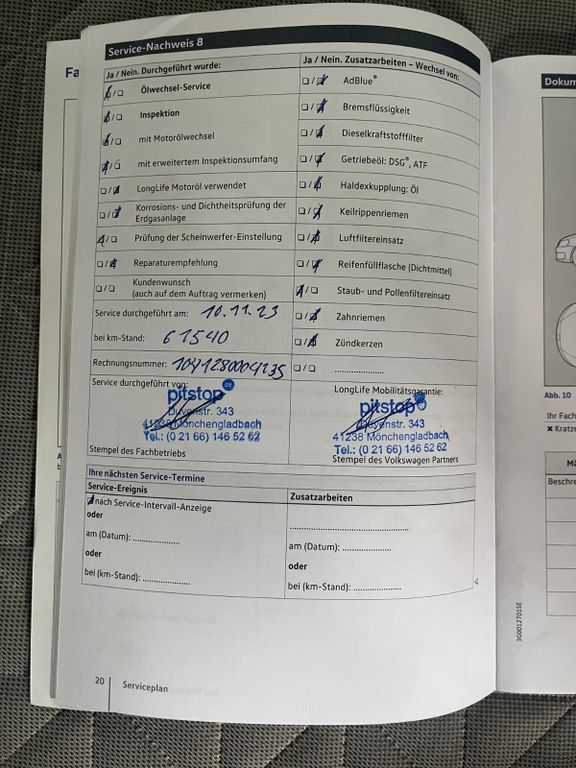 Service-Nachweis 8
Ja / Nein. Durchgeführt wurde:
☒/☐ Ölwechsel-Service
☒/☐ Inspektion
☒/☐ mit Motorölwechsel
☒/☐ mit erweitertem Inspektionsumfang
☐/☒ LongLife Motoröl verwendet
☐/☒ Korrosions- und Dichtheitsprüfung der
Erdgasanlage
☒/☐ Prüfung der Scheinwerfer-Einstellung
☐/☒ Reparaturempfehlung
☐/☐ Kundenwunsch
(auch auf dem Auftrag vermerken)
Service durchgeführt am: 10.11.23
bei km-Stand: 61540
Rechnungsnummer: 1041280004235
Service durchgeführt von:
pitstop.de
Duvenstr. 343
41238 Mönchengladbach
Tel.: (0 21 66) 146 52 62
Stempel des Fachbetriebs
Ja / Nein. Zusatzarbeiten – Wechsel von:
☐/☒ AdBlue®
☐/☒ Bremsflüssigkeit
☐/☒ Dieselkraftstofffilter
☐/☒ Getriebeöl: DSG®, ATF
☐/☒ Haldexkupplung: Öl
☐/☒ Keilrippenriemen
☐/☒ Luftfiltereinsatz
☐/☒ Reifenfüllflasche (Dichtmittel)
☒/☐ Staub- und Pollenfiltereinsatz
☐/☒ Zahnriemen
☐/☒ Zündkerzen
☐/☐ ....................
LongLife Mobilitätsgarantie:
pitstop
Duvenstr. 343
41238 Mönchengladbach
Tel.: (0 21 66) 146 52 62
Stempel des Volkswagen Partners
Ihre nächsten Service-Termine
Service-Ereignis
☒ nach Service-Intervall-Anzeige
oder
am (Datum): ...................
oder
bei (km-Stand): ...................
Zusatzarbeiten
................................................
am (Datum): ...................
oder
bei (km-Stand): ...................
20
Serviceplan
Fa
Dokum
Abb. 10
Ihr Fach
✖ Kratze
Mä
Beschre
3G0012701SE